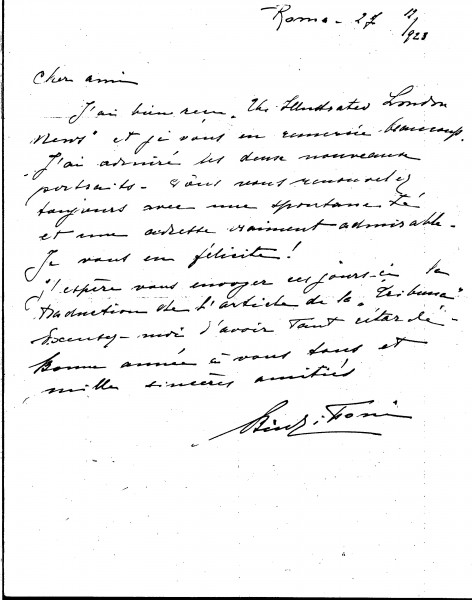 Roma - 27 12/1923
Cher ami
J'ai bien reçu „The Illustrated London
News" et je vous en remercie beaucoup.
J'ai admiré les deux nouveaux
portraits - Vous vous renouvelez
toujours avec une spontanéité
et une adresse vraiment admirable -
Je vous en félicite!
J'espère vous envoyer ces jours-ci la
traduction de l'article de la „Tribuna"
Excusez-moi d'avoir tant retardé -
Bonne année à vous tous et
mille sincères amitiés